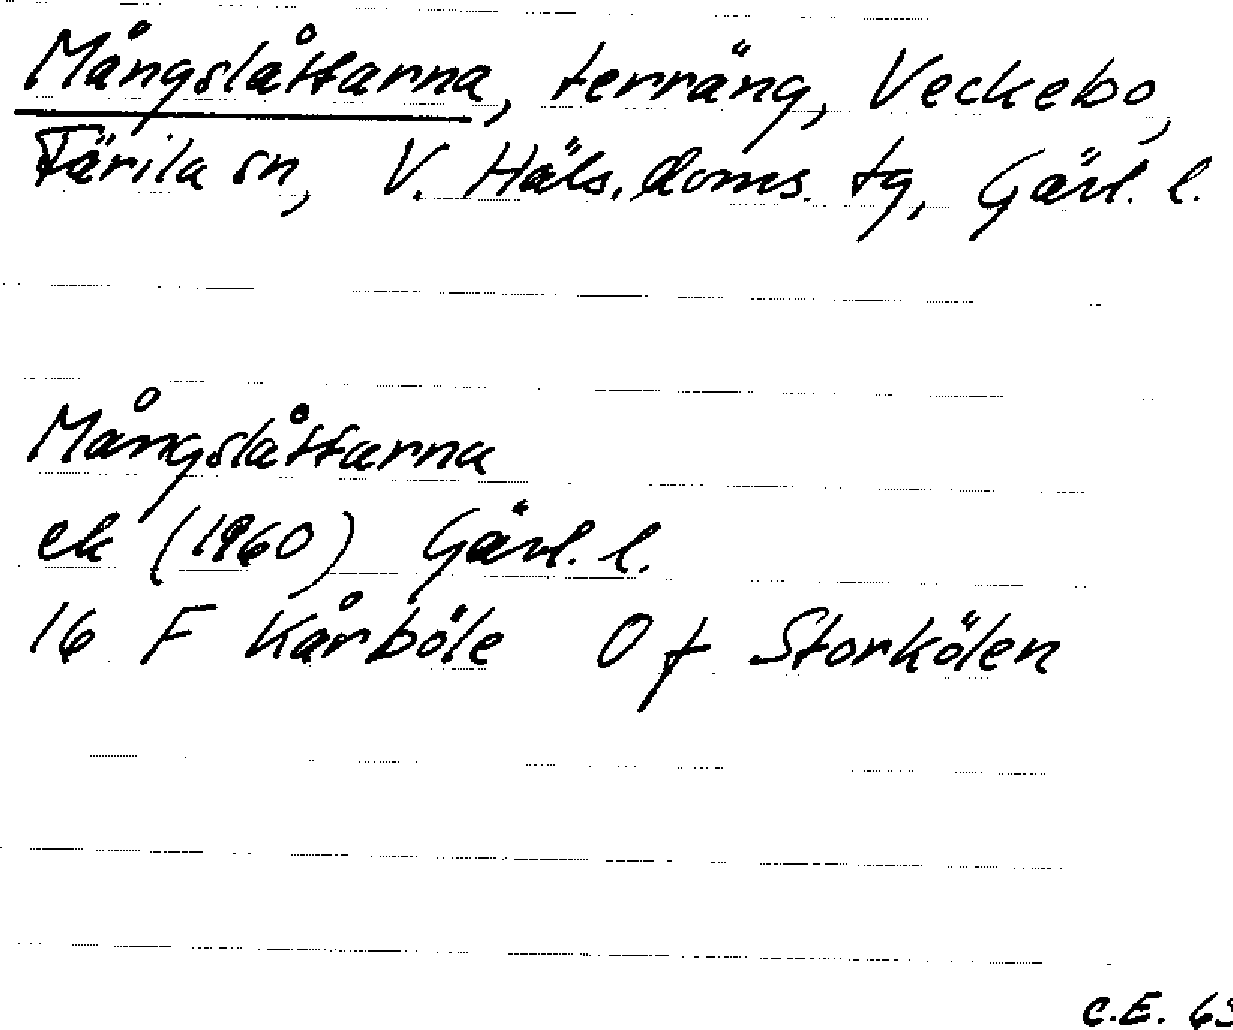 Mångslåttarna, terräng, Veckebo,
Färila sn, V. Häls. doms. tg, Gävl. l.
Mångslåttarna
ek (1960) Gävl. l.
16 F Kårböle O f Storkölen
C.E. 63